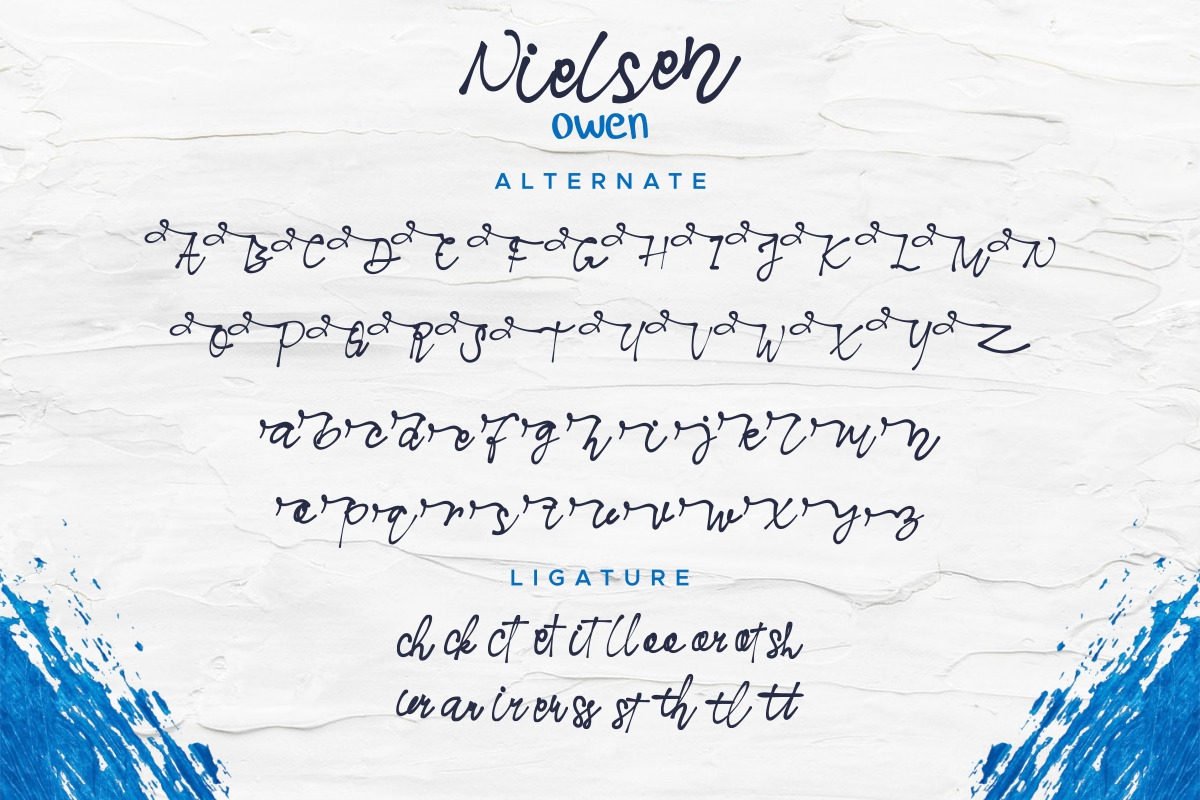 Nielsen
owen
ALTERNATE
A B C D E F G H I J K L M N
O P Q R S T U V W X Y Z
a b c d e f g h i j k l m n
o p q r s t u v w x y z
LIGATURE
ch ck ct et it ll oo or ot sh
ur ar ir er ss st th tl tt